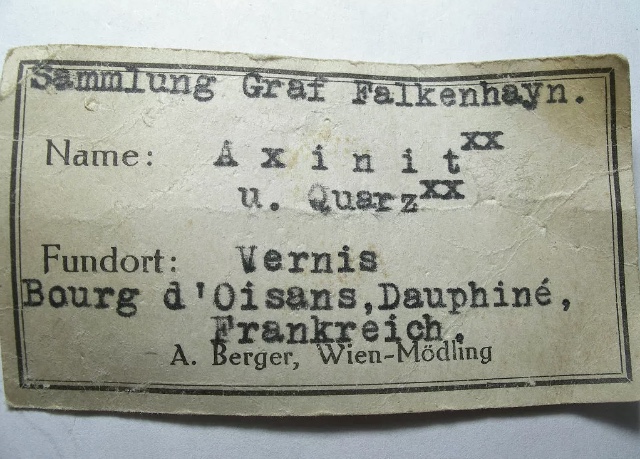 Sammlung Graf Falkenhayn.
Name: A x i n i t xx
u. Quarz xx
Fundort: Vernis
Bourg d'Oisans,Dauphiné,
Frankreich.
A. Berger, Wien-Mödling